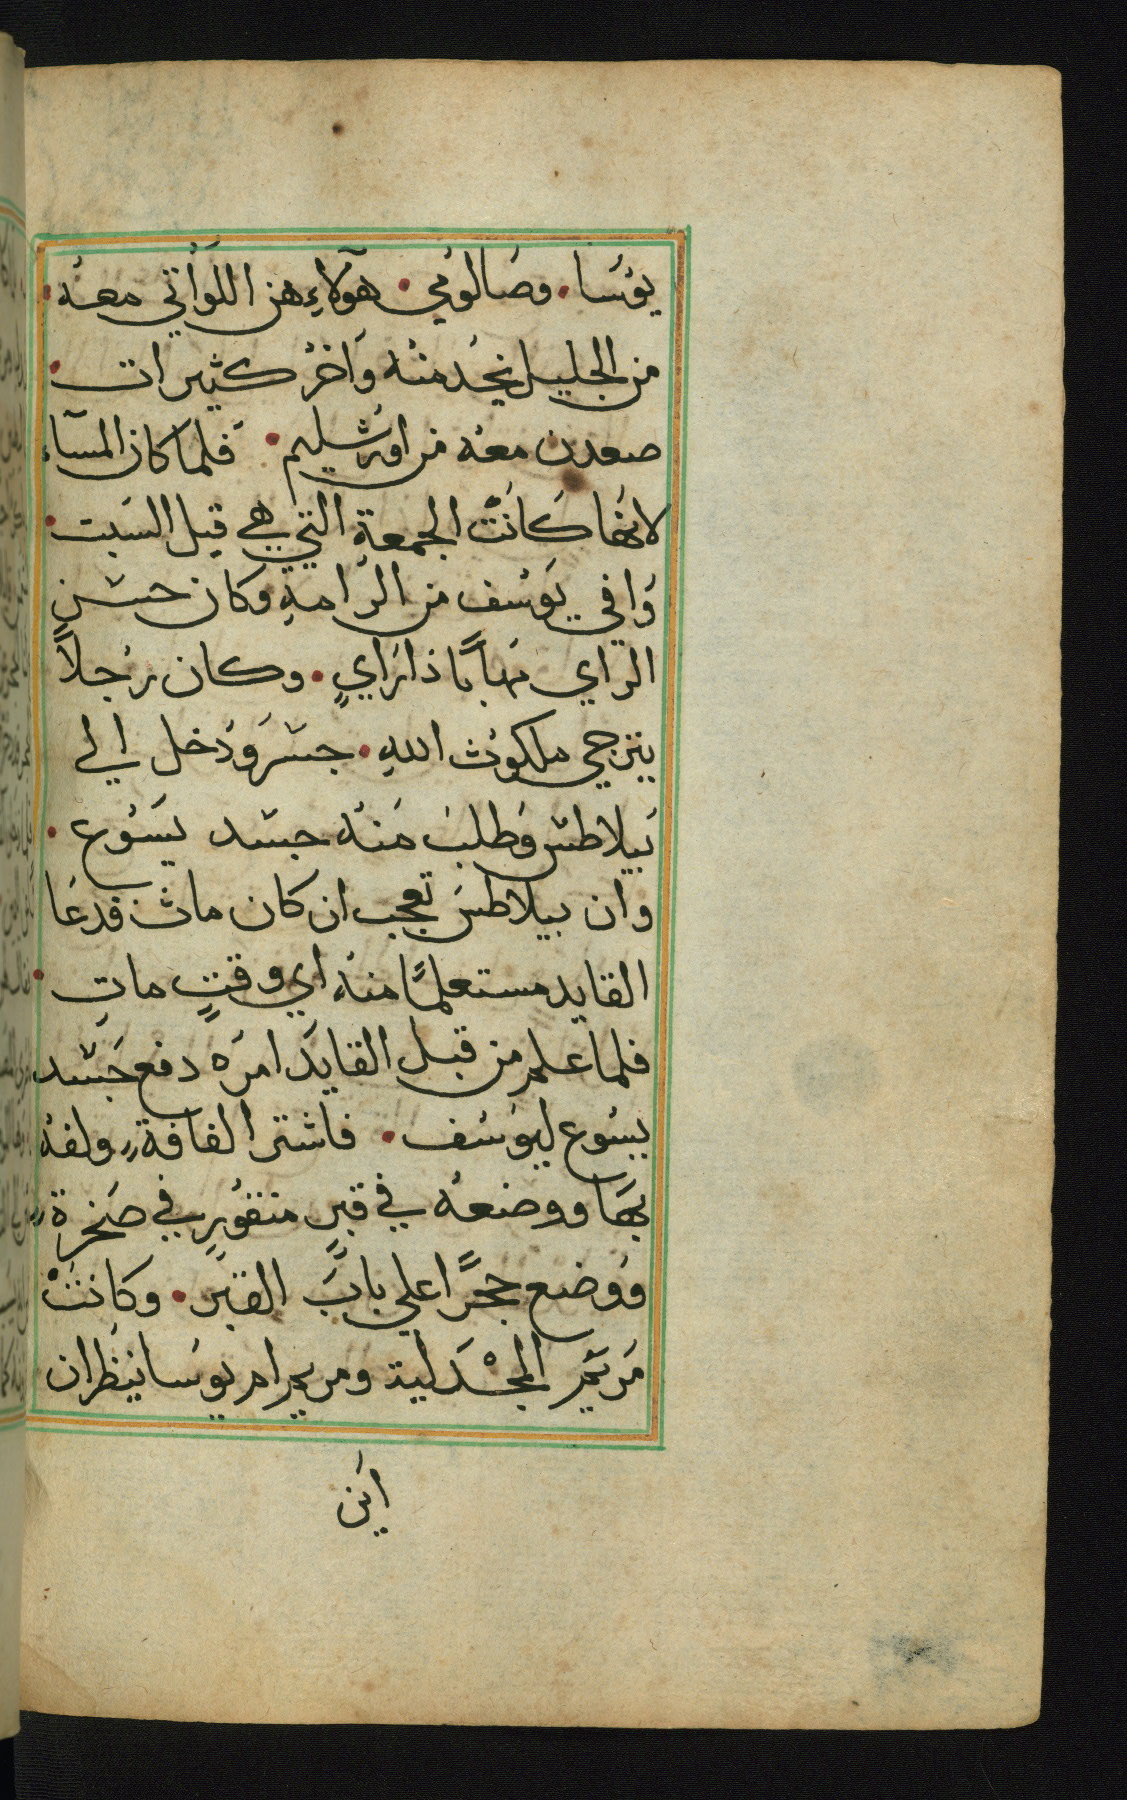 يوسا. وصالومي. هولاء هن اللواتي معه.
من الجليل يخدمنه واخر كثيرات.
صعدن معه من اورشليم. فلما كان المسآء
لانها كانت الجمعة التي هي قبل السبت.
وافي يوسف من الرامة وكان حسن
الراي مهابًا ذا رايٍ. وكان رجلاً
يترجي ملكوت الله. جسر ودخل الي
بيلاطس وطلب منه جسد يسوع.
وان بيلاطس تعجب ان كان مات فدعا
القايد مستعلمًا منه اي وقتٍ مات.
فلما علم من قبل القايد امره دفع جسد
يسوع ليوسف. فاشترا لفافة ولفه
بها ووضعه في قبرٍ منقورٍ في صخرة
ووضع حجرًا علي باب القبر. وكانت
مريم المجدلية ومريم ام يوسا ينظران
اين